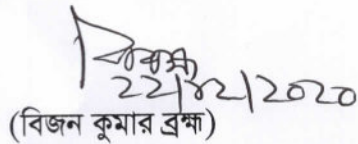 22/12/2020
(বিজন কুমার ব্রহ্ম)